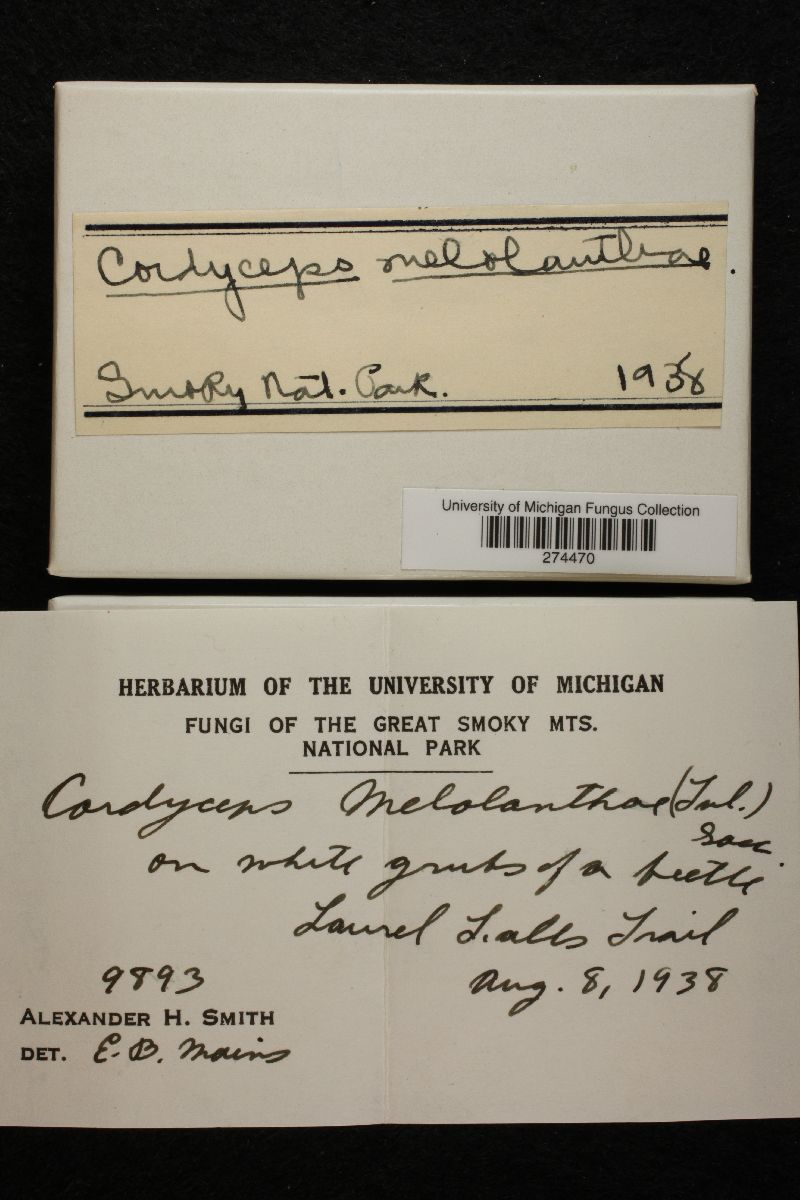 Cordyceps melolanthae.
Smoky Nat. Park. 1938
University of Michigan Fungus Collection
274470
HERBARIUM OF THE UNIVERSITY OF MICHIGAN
FUNGI OF THE GREAT SMOKY MTS.
NATIONAL PARK
Cordyceps Melolanthae (Tul.)
Sacc.
on white grubs of a beetle
Laurel Falls Trail
9893 Aug. 8, 1938
ALEXANDER H. SMITH
DET. E. B. Mains